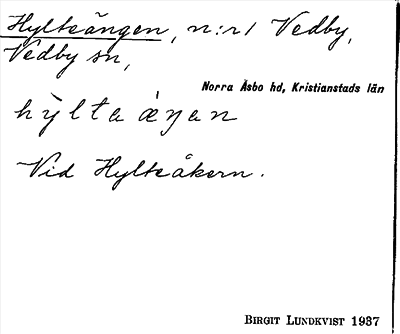 Hylteängen, n:r 1 Vedby,
Vedby sn,
Norra Åsbo hd, Kristianstads län
hỳlta ǽŋan
Vid Hylteåkern.
BIRGIT LUNDKVIST 1937